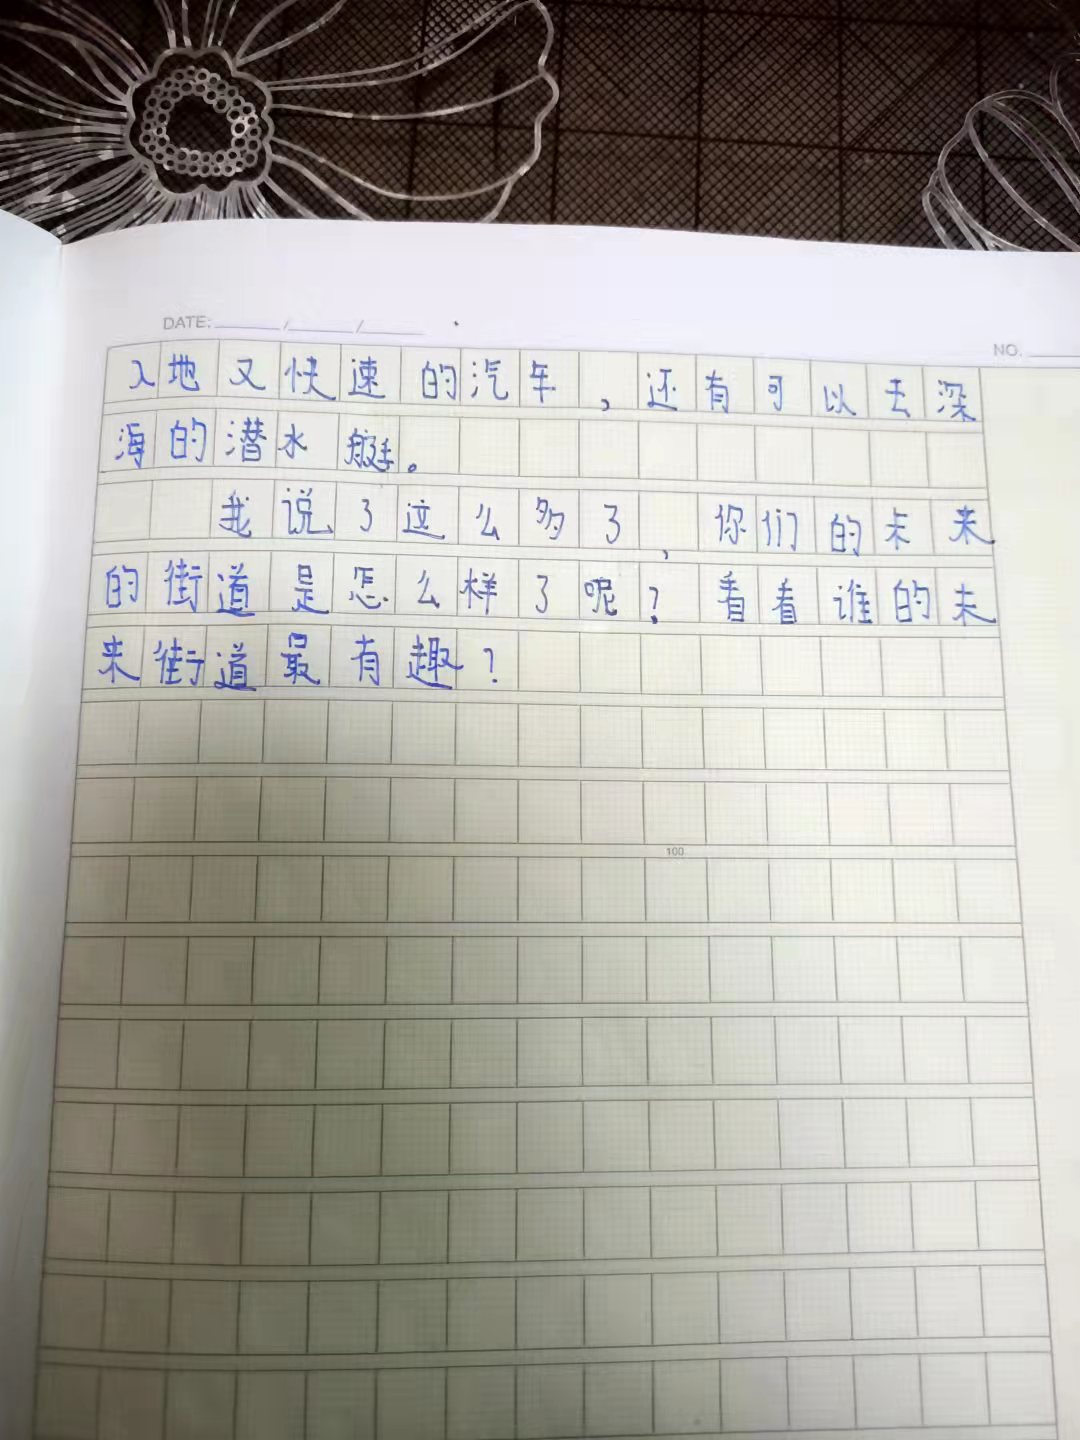 DATE: / /
NO.
入地又快速的汽车,还有可以去深
海的潜水艇。
我说了这么多了,你们的未来
的街道是怎么样了呢?看看谁的未
来街道最有趣?
100